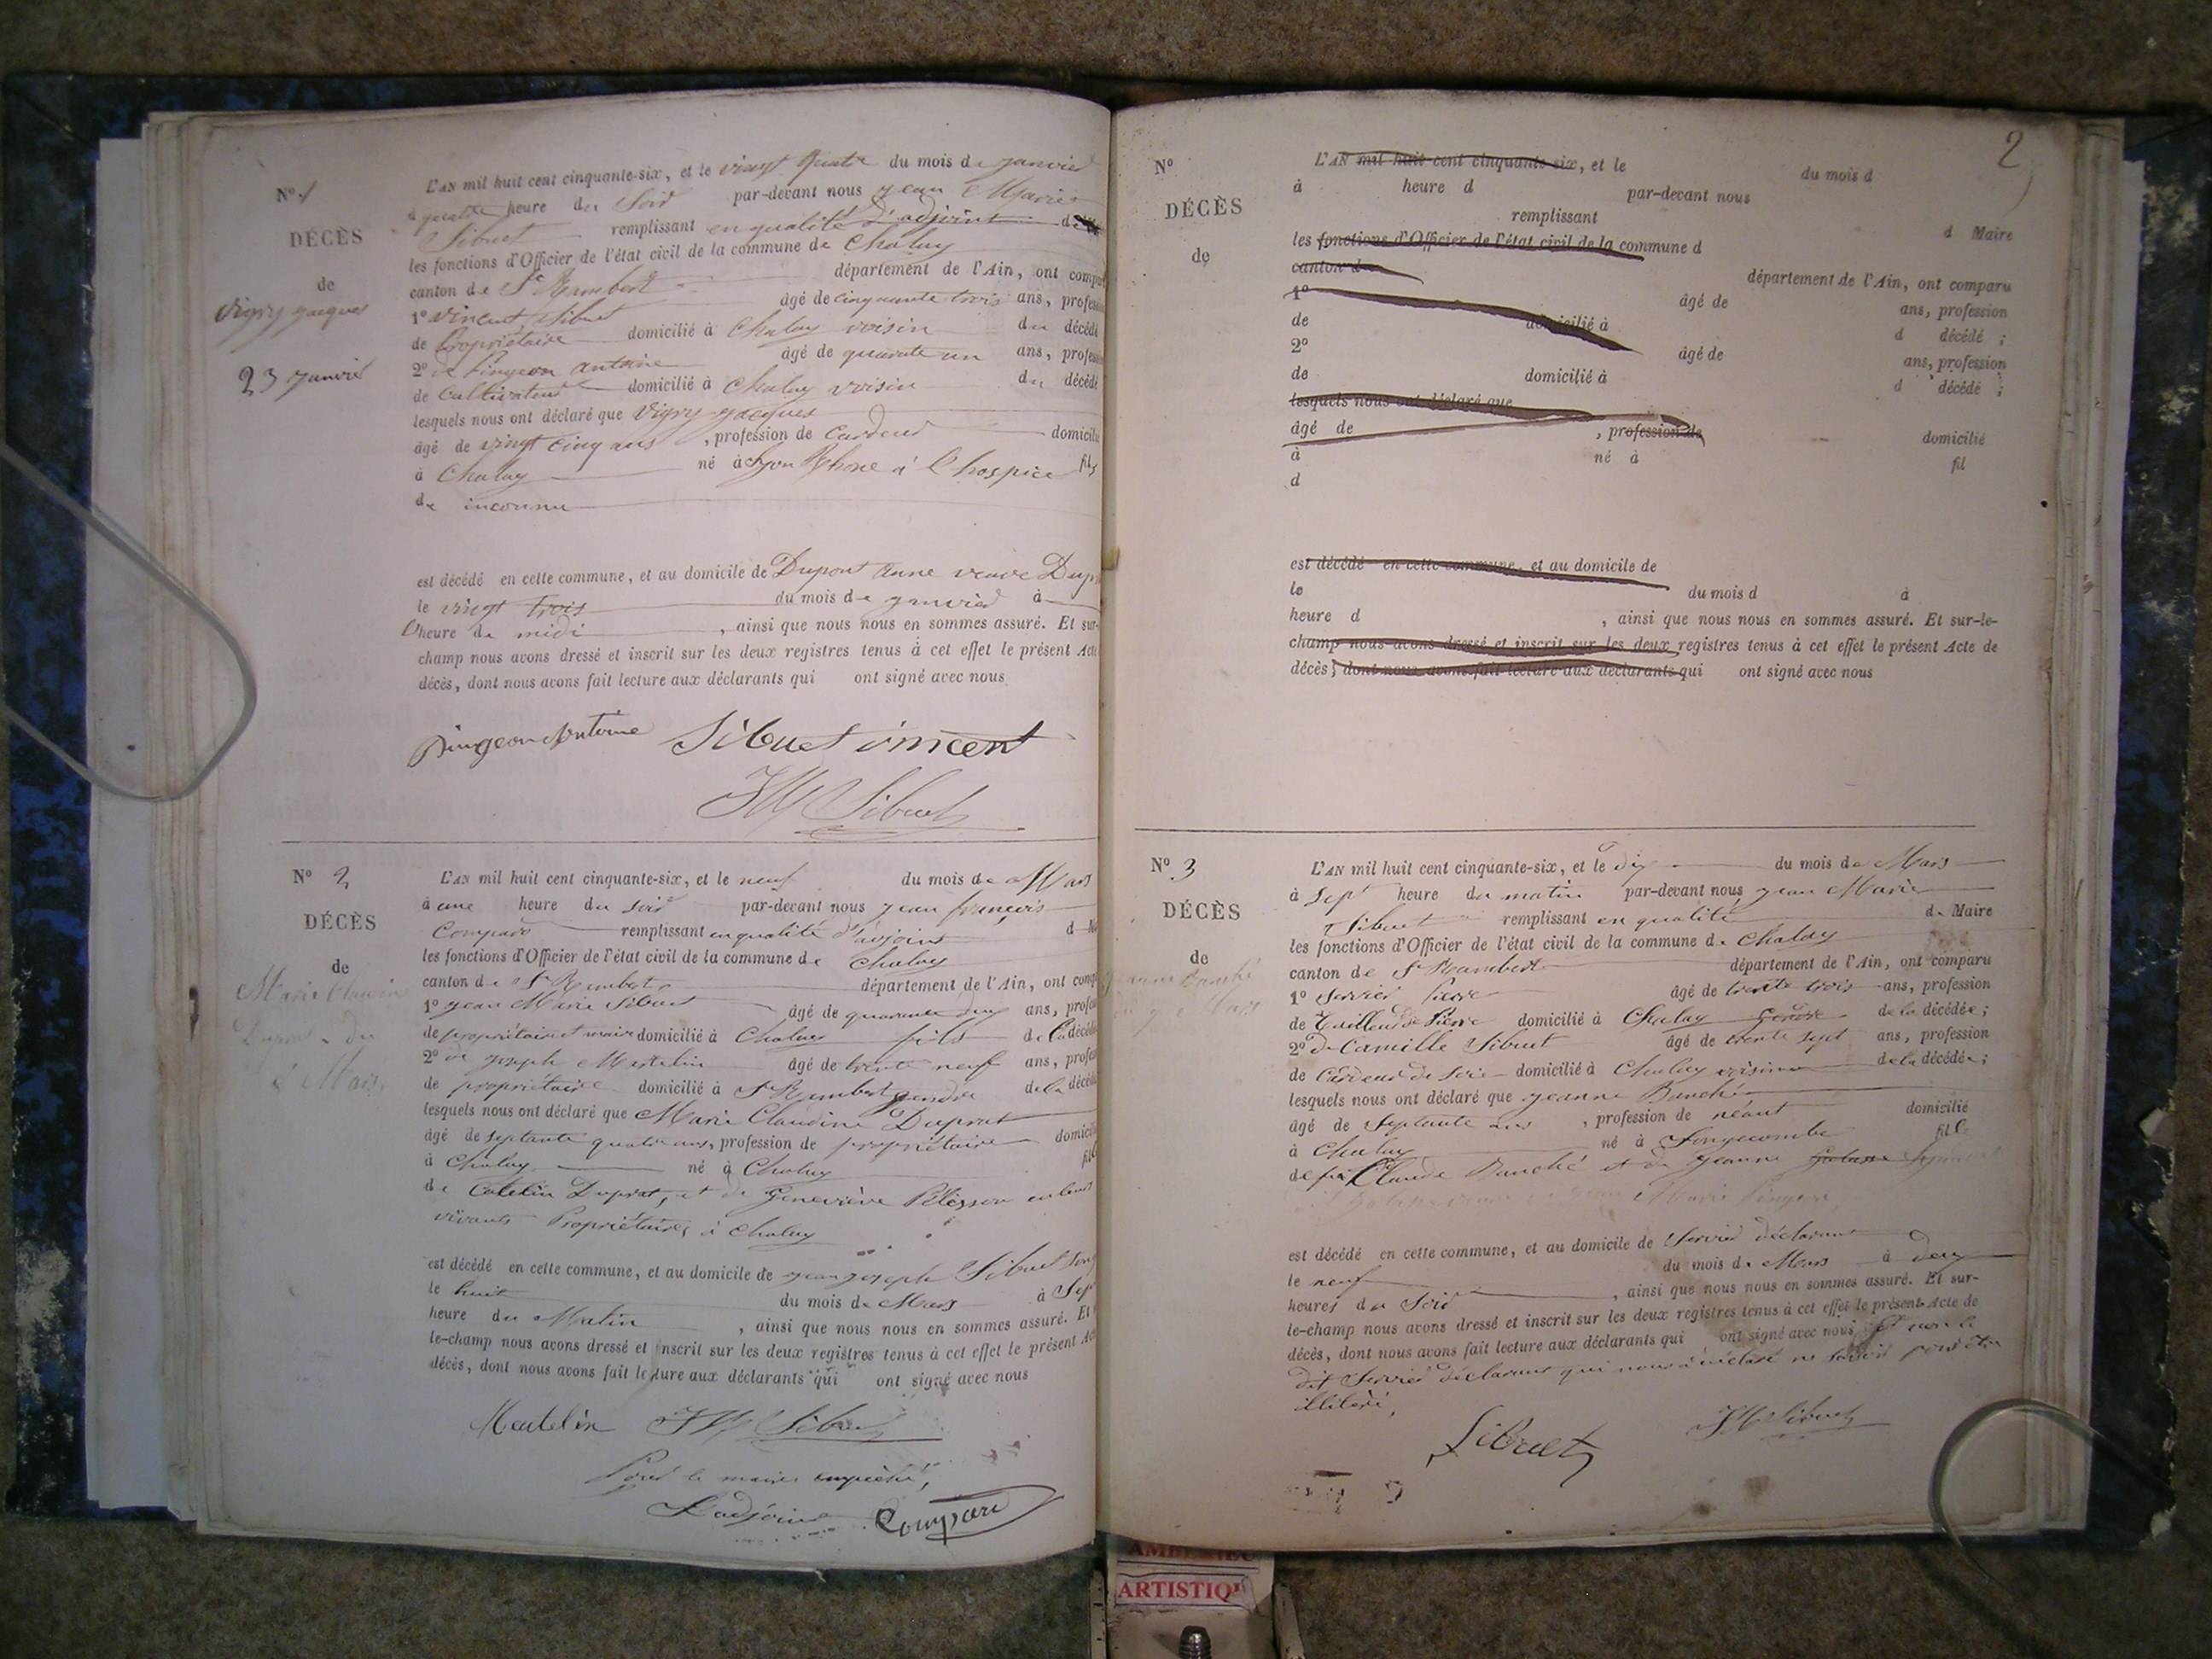 N° 1
DÉCÈS
de
Vigny Jacques
23 Janvier
L'AN mil huit cent cinquante-six, et le vingt quatre du mois de janvier
à quatre heure du Soir par-devant nous Jean Marie
Sibuet remplissant en qualité d'adjoint
les fonctions d'Officier de l'état civil de la commune de Chaley
canton de St Rambert département de l'Ain, ont compar
1° Vincent Sibuet âgé de cinquante trois ans, profession
de Propriétaire domicilié à Chaley voisin du décédé
2° de Pingeon antoine âgé de quarante un ans, profess
de Cultivateur domicilié à Chaley voisin du décédé
lesquels nous ont déclaré que Vigny Jacques
âgé de vingt cinq ans, profession de Cardeur domicilié
à Chaley né à Lyon Rhone à l'hospice fils
de inconnu
est décédé en cette commune, et au domicile de Dupont Anne veuve Dup
le vingt trois du mois de janvier à
l'heure de midi, ainsi que nous nous en sommes assuré. Et sur-
champ nous avons dressé et inscrit sur les deux registres tenus à cet effet le présent Acte
décès, dont nous avons fait lecture aux déclarants qui ont signé avec nous
Pingeon Antoine Sibuet vincent
JM Sibuet
N° 2
DÉCÈS
de
Marie Claudine
Duprat du
8 Mars
L'AN mil huit cent cinquante-six, et le neuf du mois de Mars
à une heure du soir par-devant nous Jean françois
Compare remplissant en qualité d'adjoint d
les fonctions d'Officier de l'état civil de la commune de Chaley
canton de St Rambert département de l'Ain, ont comp
1° Jean Marie Sibuet âgé de quarante ans, profes
de propriétaire et maire domicilié à Chaley fils de la décéd
2° de Joseph Mestelin âgé de trente neuf ans, profes
de propriétaire domicilié à St Rambert gendre de la décéd
lesquels nous ont déclaré que Marie Claudine Duprat
âgé de septante quatre ans, profession de propriétaire domicil
à Chaley né à Chaley fil
de Catelin Duprat, et de Geneviève Pélisson en leurs
vivants Propriétaires à Chaley
est décédé en cette commune, et au domicile de Jean joseph Sibuet son
le huit du mois de Mars à Sept
heure du Matin, ainsi que nous nous en sommes assuré. Et
le-champ nous avons dressé et inscrit sur les deux registres tenus à cet effet le présent Act
décès, dont nous avons fait lecture aux déclarants qui ont signé avec nous
Mestelin JM Sibuet
Pour le maire empêché,
L'adjoint Compare
2
N°
DÉCÈS
de
L'AN mil huit cent cinquante-six, et le du mois d
à heure d par-devant nous
remplissant d Maire
les fonctions d'Officier de l'état civil de la commune d
canton de département de l'Ain, ont comparu
1° âgé de ans, profession
de domicilié à d décédé ;
2° âgé de ans, profession
de domicilié à d décédé ;
lesquels nous ont déclaré que
âgé de , profession de domicilié
à né à fil
d
est décédé en cette commune, et au domicile de
le du mois d à
heure d , ainsi que nous nous en sommes assuré. Et sur-le-
champ nous avons dressé et inscrit sur les deux registres tenus à cet effet le présent Acte de
décès, dont nous avons fait lecture aux déclarants qui ont signé avec nous
N° 3
DÉCÈS
de
Jeanne Banché
du 9 Mars
L'AN mil huit cent cinquante-six, et le dix du mois de Mars
à Sept heure du matin par-devant nous Jean Marie
Sibuet remplissant en qualité de Maire
les fonctions d'Officier de l'état civil de la commune de Chaley
canton de St Rambert département de l'Ain, ont comparu
1° Servier Pierre âgé de trente trois ans, profession
de Tailleur de Pierre domicilié à Chaley Gendre de la décédée ;
2° de Camille Sibuet âgé de trente sept ans, profession
de Cardeur de Soie domicilié à Chaley voisin de la décédée ;
lesquels nous ont déclaré que Jeanne Banché
âgé de Septante ans, profession de néant domicilié
à Chaley né à Longecombe fille
de feu Claude Banché et de Jeanne
Marie Pingeon
est décédé en cette commune, et au domicile de Servier déclarant
le neuf du mois de Mars à deux
heures du Soir, ainsi que nous nous en sommes assuré. Et sur-
le-champ nous avons dressé et inscrit sur les deux registres tenus à cet effet le présent Acte de
décès, dont nous avons fait lecture aux déclarants qui ont signé avec nous et non le
dit Servier déclarant qui nous a déclaré ne savoir pour être
illitéré,
Sibuet JM Sibuet
ARTISTIQU